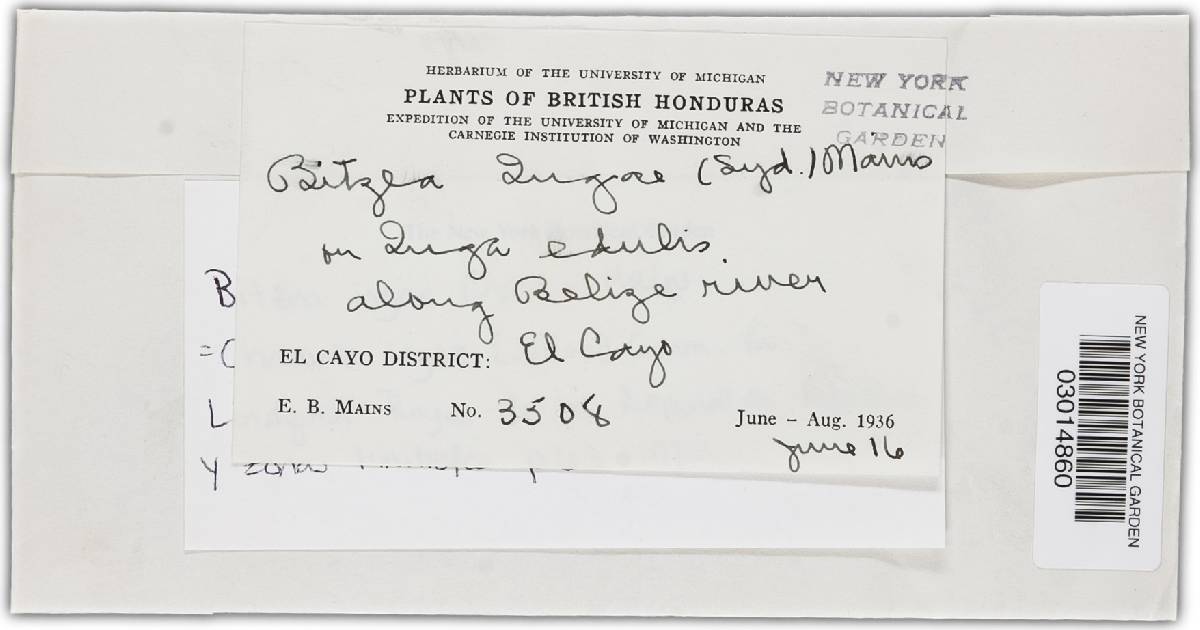 HERBARIUM OF THE UNIVERSITY OF MICHIGAN
PLANTS OF BRITISH HONDURAS
EXPEDITION OF THE UNIVERSITY OF MICHIGAN AND THE
CARNEGIE INSTITUTION OF WASHINGTON
NEW YORK
BOTANICAL
GARDEN
Bitzea Ingae (Syd.) Mains
on Inga edulis.
along Belize river
EL CAYO DISTRICT: El Cayo
E. B. MAINS No. 3508 June – Aug. 1936
June 16
B
=C
L
Y
NEW YORK BOTANICAL GARDEN
03014860